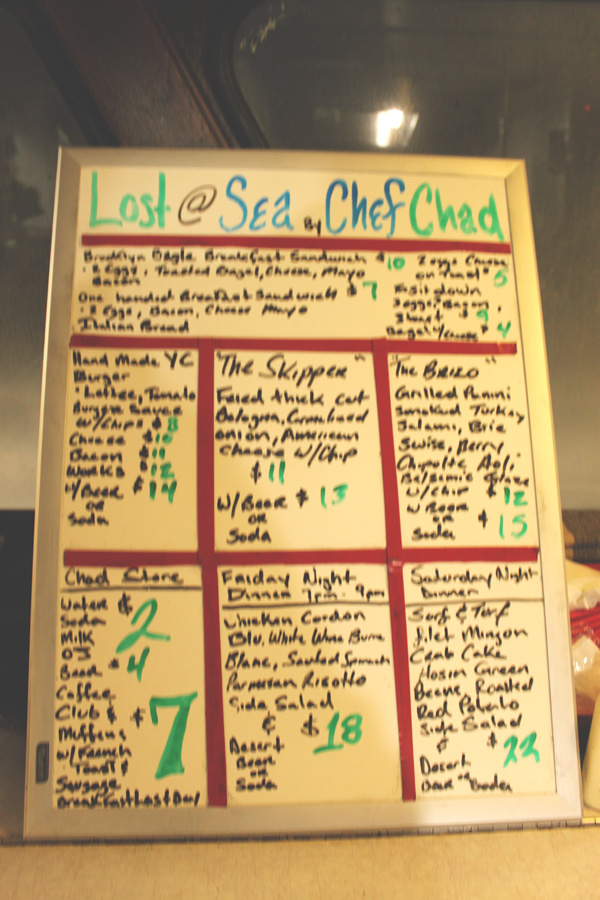 Lost @ Sea By Chef Chad
Brooklyn Bagle Breakfast Sandwich $10
2 Eggs, Toasted Bagel, Cheese, Mayo
Bacon
One handed Breakfast Sandwich $7
2 Eggs, Bacon, Cheese Mayo
Italian Bread
2 eggs Cheese
on Toast $5
Sit down
Bacon,
$9
Bagel w/cheese $4
Hand Made YC
Burger
Tomato
Burger Sauce
w/Chips $8
Cheese $10
Bacon $11
Works $12
w/Beer $14
or
Soda
"The Skipper"
Fried thick cut
Bologna,
onion, American
Cheese w/Chip
$11
w/Beer $13
or
Soda
"The Brizo"
Grilled Panini
Smoked Turkey
Salami, Brie
Swise, Berry
Chipolte
w/Chip $12
w Beer
or $15
Soda
Chad Store
Water $2
Soda
Milk
OJ
Beer $4
Coffee
Club & $7
Muffens
w/French
Toast &
Sausage
Breakfast Last Day
Friday Night
Dinner 7pm-9pm
Chicken Cordon
Blu, White Wine Burre
Blanc, Sauted Spinach
Parmesan Risotto
Side Salad
& $18
Desert
Beer
or
Soda
Saturday Night
Dinner
Surf & Turf
filet Mingon
Crab Cake
Hosin Green
Beens, Roasted
Red Potato
Side Salad
& $22
Desert
Beer or Soda